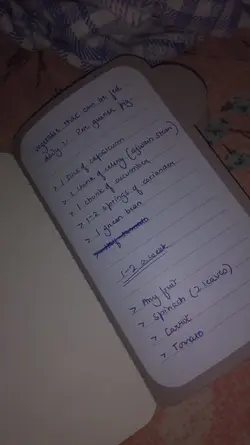 vegetables that can be fed
daily to 2m guinea pig:
> 1 chunk of capsicum
> 1 chunk of celery (ajwain stem)
> 1 chunk of cucumber
> 1-2 springs of coriander
> 1 green bean
1-2 a week
> Any fruit
> Spinach (2 leaves)
> Carrot
> Tomato